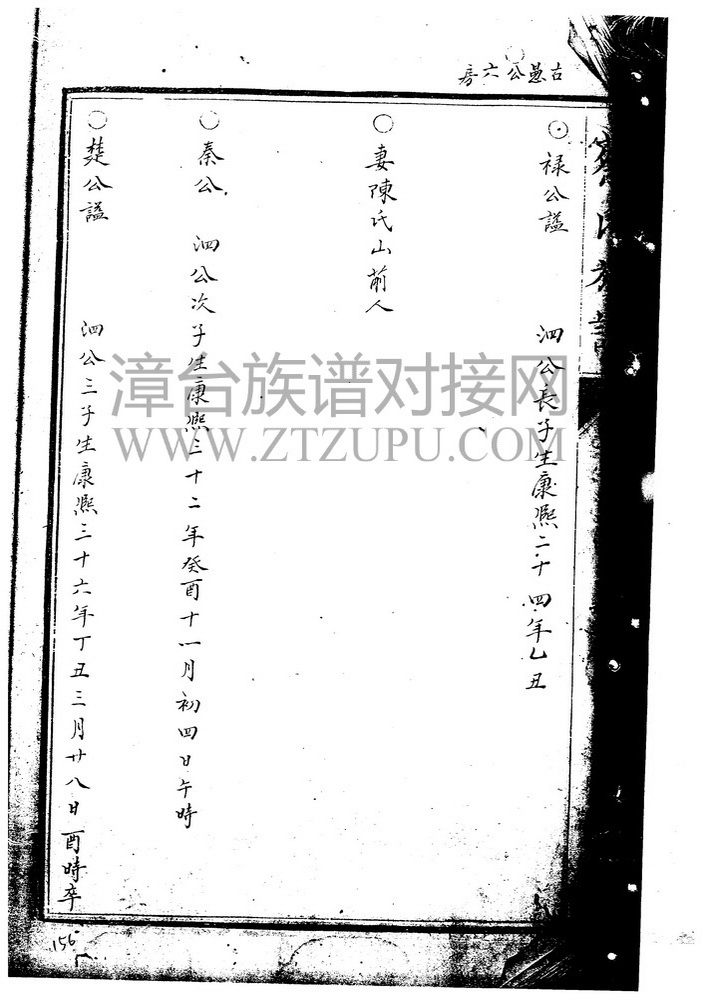 古愚公六房
祿公諡 泗公長子生康熙二十四年乙丑
妻陳氏山前人
秦公 泗公次子生康熙三十二年癸酉十一月初四日午時
楚公諡 泗公三子生康熙三十六年丁丑三月廿八日酉時卒
漳台族谱对接网
WWW.ZTZUPU.COM
156